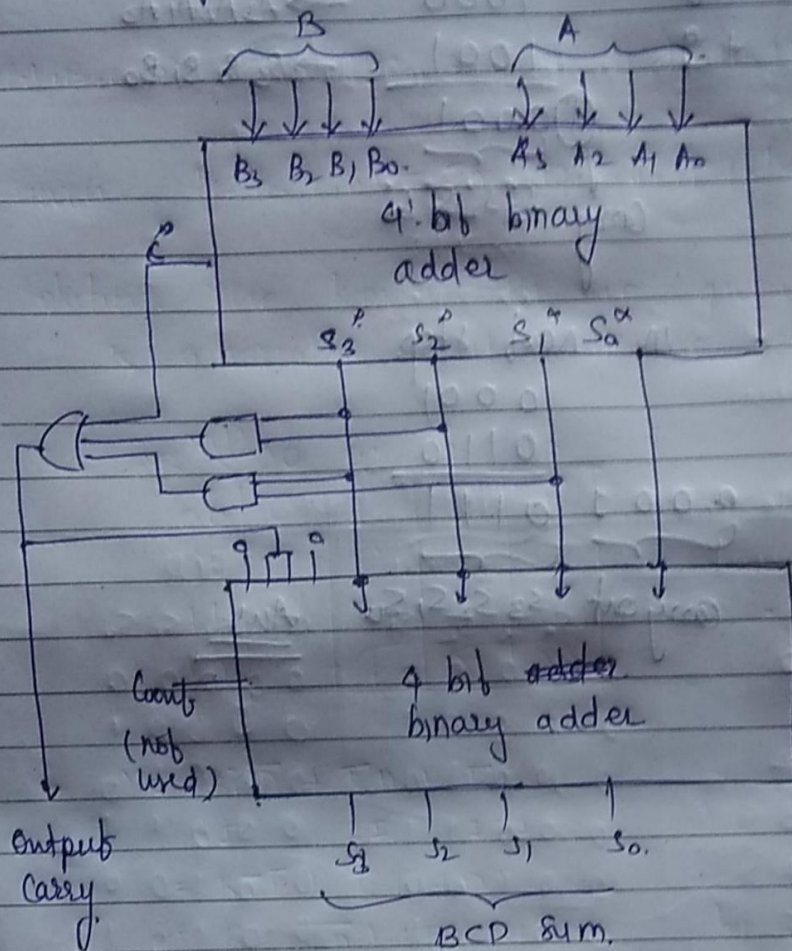 B A
B3 B2 B1 B0. A3 A2 A1 A0
4 bit binary
adder
C
S3 S2 S1 S0
0 0
4 bit
binary adder
Cout
(not
used)
Output
Carry.
S3 S2 S1 S0.
BCD Sum.